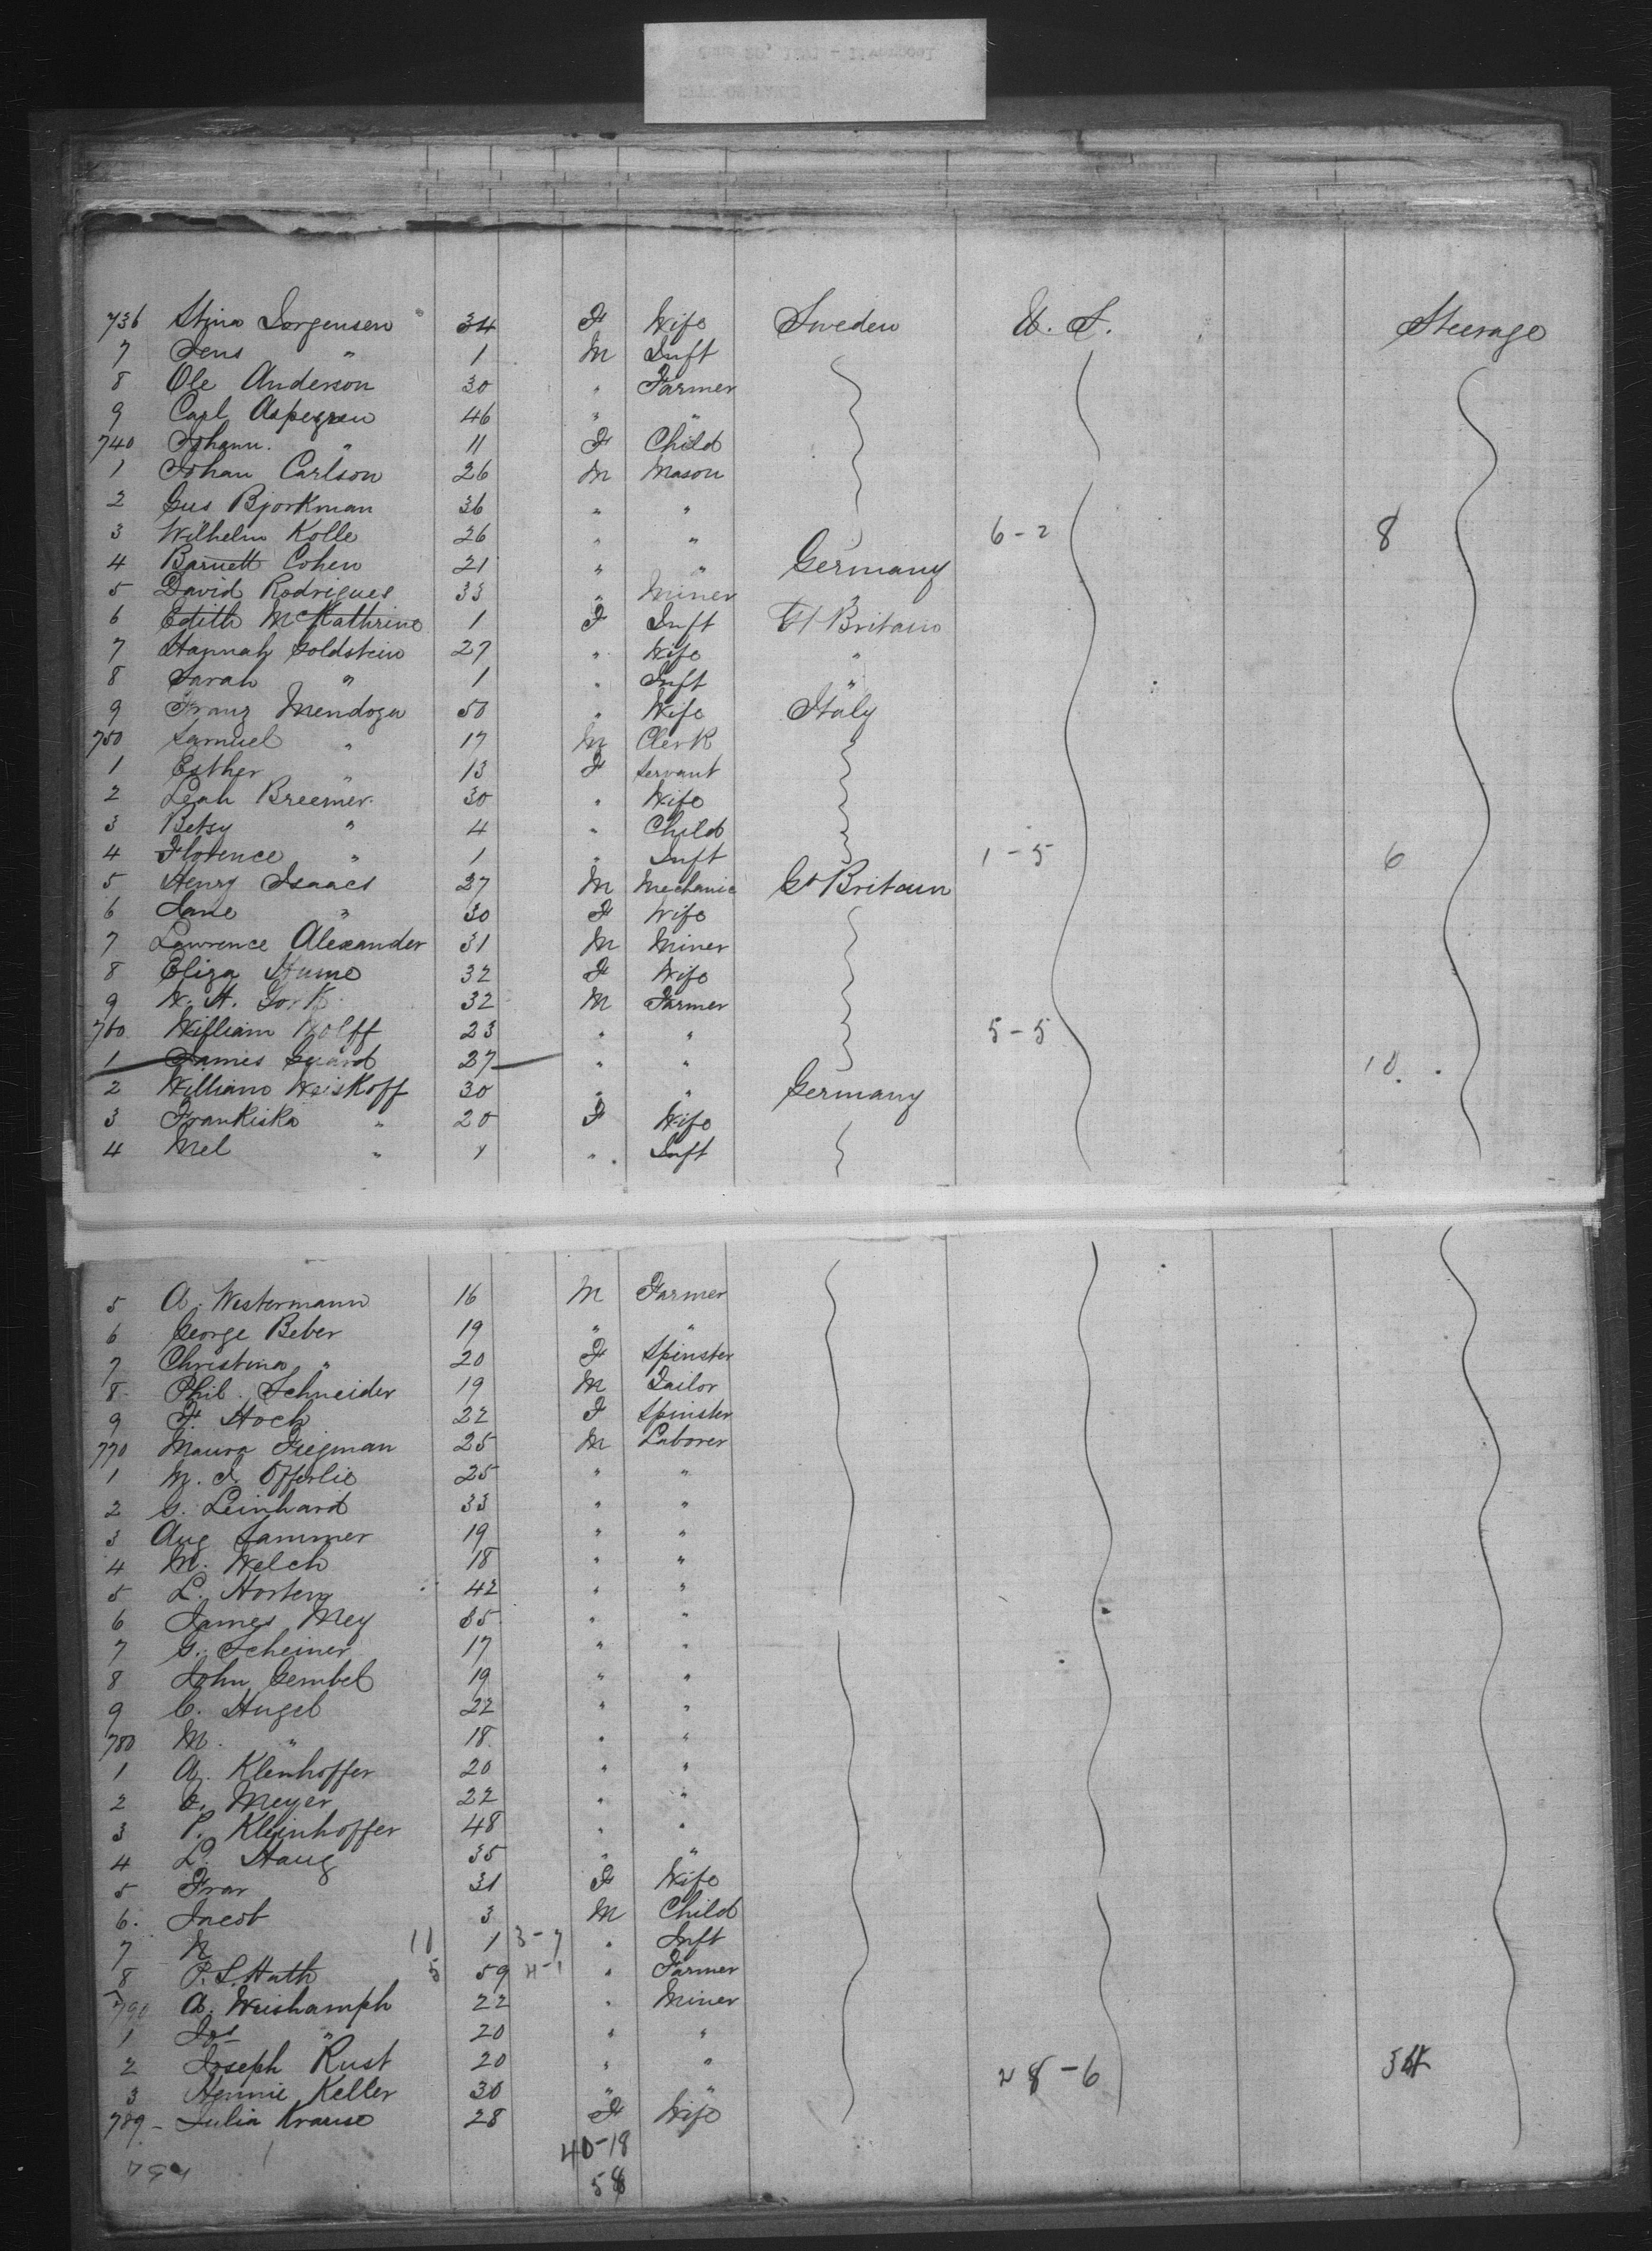 736 Stina Jorgensen 34 F Wife Sweden U. S. Steerage
7 Jens " 1 M Inft
8 Ole Anderson 30 " Farmer
9 Carl Aspegren 46 " "
740 Johann. " 11 F Child
1 Johan Carlson 26 M Mason
2 Gus Bjorkman 36 " "
3 Wilhelm Kolle 26 " " 6-2 8
4 Barnett Cohen 21 " " Germany
5 David Rodrigues 33 " Miner "
6 Edith McKathrine 1 F Inft Gt Britain
7 Hannah Goldstein 27 " Wife "
8 Sarah " 1 " Inft "
9 Franz Mendoza 50 " Wife Italy
750 Samuel " 17 M Clerk
1 Esther " 13 F Servant
2 Leah Breemer 30 " Wife
3 Betsy " 4 " Child
4 Florence " 1 " Inft 1-5 6
5 Henry Isaacs 27 M Mechanic Gt Britain
6 Jane " 30 F Wife
7 Lawrence Alexander 31 M Miner
8 Eliza Hume 32 F Wife
9 W. H. York 32 M Farmer
760 William Wolff 23 " " 5-5
1 James Guard 27 " " 10.
2 William Weiskoff 30 " " Germany
3 Frankiska " 20 F Wife
4 Mel " 1 " Inft
5 A. Westermann 16 M Farmer
6 George Beber 19 " "
7 Christina " 20 F Spinster
8 Phil. Schneider 19 M Tailor
9 F. Hoch 22 F Spinster
770 Maura Fiegman 25 M Laborer
1 M. J. Offerlie 25 " "
2 G. Leinhard 33 " "
3 Aug Sammer 19 " "
4 M. Welch 18 " "
5 L. Horten 42 " "
6 James Mey 35 " "
7 G. Scheiner 17 " "
8 John Gembel 19 " "
9 C. Hugel 22 " "
780 M. " 18 " "
1 A. Klenhoffer 20 " "
2 Meyer 22 " "
3 P. Kleinhoffer 48 " "
4 Haug 35 " "
5 Frar 31 F Wife
6. Jacob 3 M Child
7 N 10 1 3-7 " Inft
8 P. S. Hath 5 59 4-1 " Farmer
790 A. Weishamph 22 " Miner
1 Jos " 20 " "
2 Joseph Rust 20 " " 28-6 54
3 Hennie Keller 30 " "
789 - Julia Krause 28 F Wife
40-18
794 58